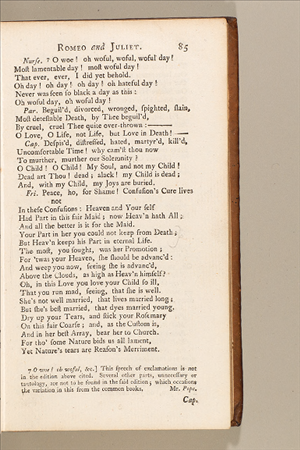 ROMEO and JULIET. 85
Nurse. 7 O woe! oh woful, woful, woful day!
Most lamentable day! most woful day!
That ever, ever, I did yet behold.
Oh day! oh day! oh day! oh hateful day!
Never was seen so black a day as this:
Oh woful day, oh woful day!
Par. Beguil'd, divorced, wronged, spighted, slain,
Most detestable Death, by Thee beguil'd,
By cruel, cruel Thee quite over-thrown:
O Love, O Life, not Life, but Love in Death!—
Cap. Despis'd, distressed, hated, martyr'd, kill'd,
Uncomfortable Time! why cam'st thou now
To murther, murther our Solemnity?
O Child! O Child! My Soul, and not my Child!
Dead art Thou! dead; alack! my Child is dead;
And, with my Child, my Joys are buried.
Fri. Peace, ho, for Shame! Confusion's Cure lives
not
In these Confusions: Heaven and Your self
Had Part in this fair Maid; now Heav'n hath All;
And all the better is it for the Maid.
Your Part in her you could not keep from Death;
But Heav'n keeps his Part in eternal Life.
The most, you sought, was her Promotion;
For 'twas your Heaven, she should be advanc'd:
And weep you now, seeing she is advanc'd,
Above the Clouds, as high as Heav'n himself?
Oh, in this Love you love your Child so ill,
That you run mad, seeing, that she is well.
She's not well married, that lives married long;
But she's best married, that dyes married young.
Dry up your Tears, and stick your Rosemary
On this fair Coarse; and, as the Custom is,
And in her best Array, bear her to Church.
For tho' some Nature bids us all lament,
Yet Nature's tears are Reason's Merriment.
7 O woe! oh woful, &c.] This speech of exclamations is not
in the edition above cited. Several other parts, unnecessary or
tautology, are not to be found in the said edition; which occasions
the variation in this from the common books. Mr. Pope.
Cap.